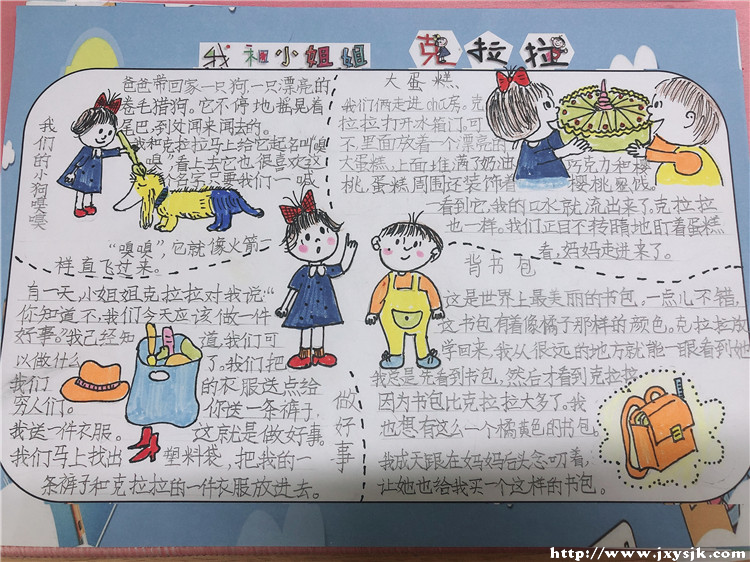 我和小姐姐 克拉拉
我们的小狗嗅嗅
爸爸带回家一只狗,一只漂亮的
卷毛猎狗。它不停地摇晃着
尾巴,到处闻来闻去的。
我和克拉拉马上给它起名叫"嗅
嗅"看上去它也很喜欢这
名字只要我们一喊
"嗅嗅",它就像火箭一
样直飞过来。
大蛋糕
我们俩走进chú房。克
拉拉打开冰箱门。可
不,里面放着一个漂亮的
大蛋糕。上面堆满了奶油
巧克力和樱
桃,蛋糕周围还装饰着
樱桃
一看到它,我的口水就流出来了。克拉拉
也一样。我们正目不转睛地盯着蛋糕
看,妈妈走进来了。
有一天,小姐姐克拉拉对我说:"
你知道不,我们今天应该做一件
好事。"我已经知道我们可
以做什么了。我们把
我们的衣服送点给
穷人们。你送一条裤子,
我送一件衣服。这就是做好事
我们马上找出塑料袋,把我的一
条裤子和克拉拉的一件衣服放进去。
做好事
背书包
这是世界上最美丽的书包。一点儿不错,
这书包有着像橘子那样的颜色。克拉拉放
学回来,我从很远的地方就能一眼看到她
我总是先看到书包,然后才看到克拉拉
因为书包比克拉拉大多了。我
也想有这么一个橘黄色的书包。
我成天跟在妈妈后头念叨着,
让她也给我买一个这样的书包。
http://www.jxysjk.com/